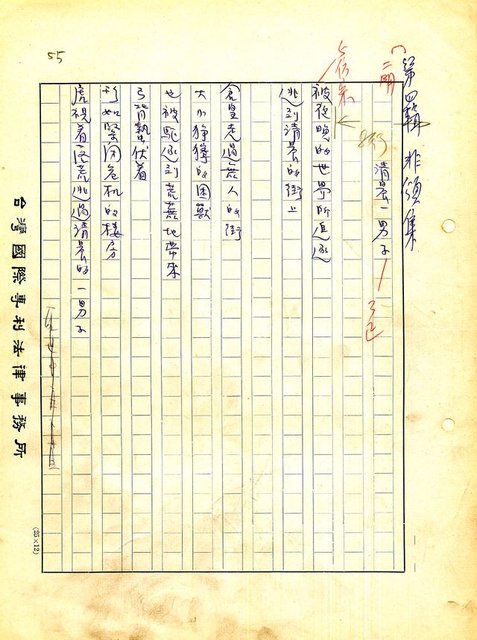 第四輯 非頌集
清晨一男子
被夜晚的世界所追逐
逃到清晨的街上
倉皇走過無人的街
大小猙獰的困獸
也被驅逐到荒蕪地帶來
弓背蟄伏着
形如緊閉危机的楼房
虎視着一匹荒逃過清晨的一男子
台灣國際專利法律事務所
(25×12)
55